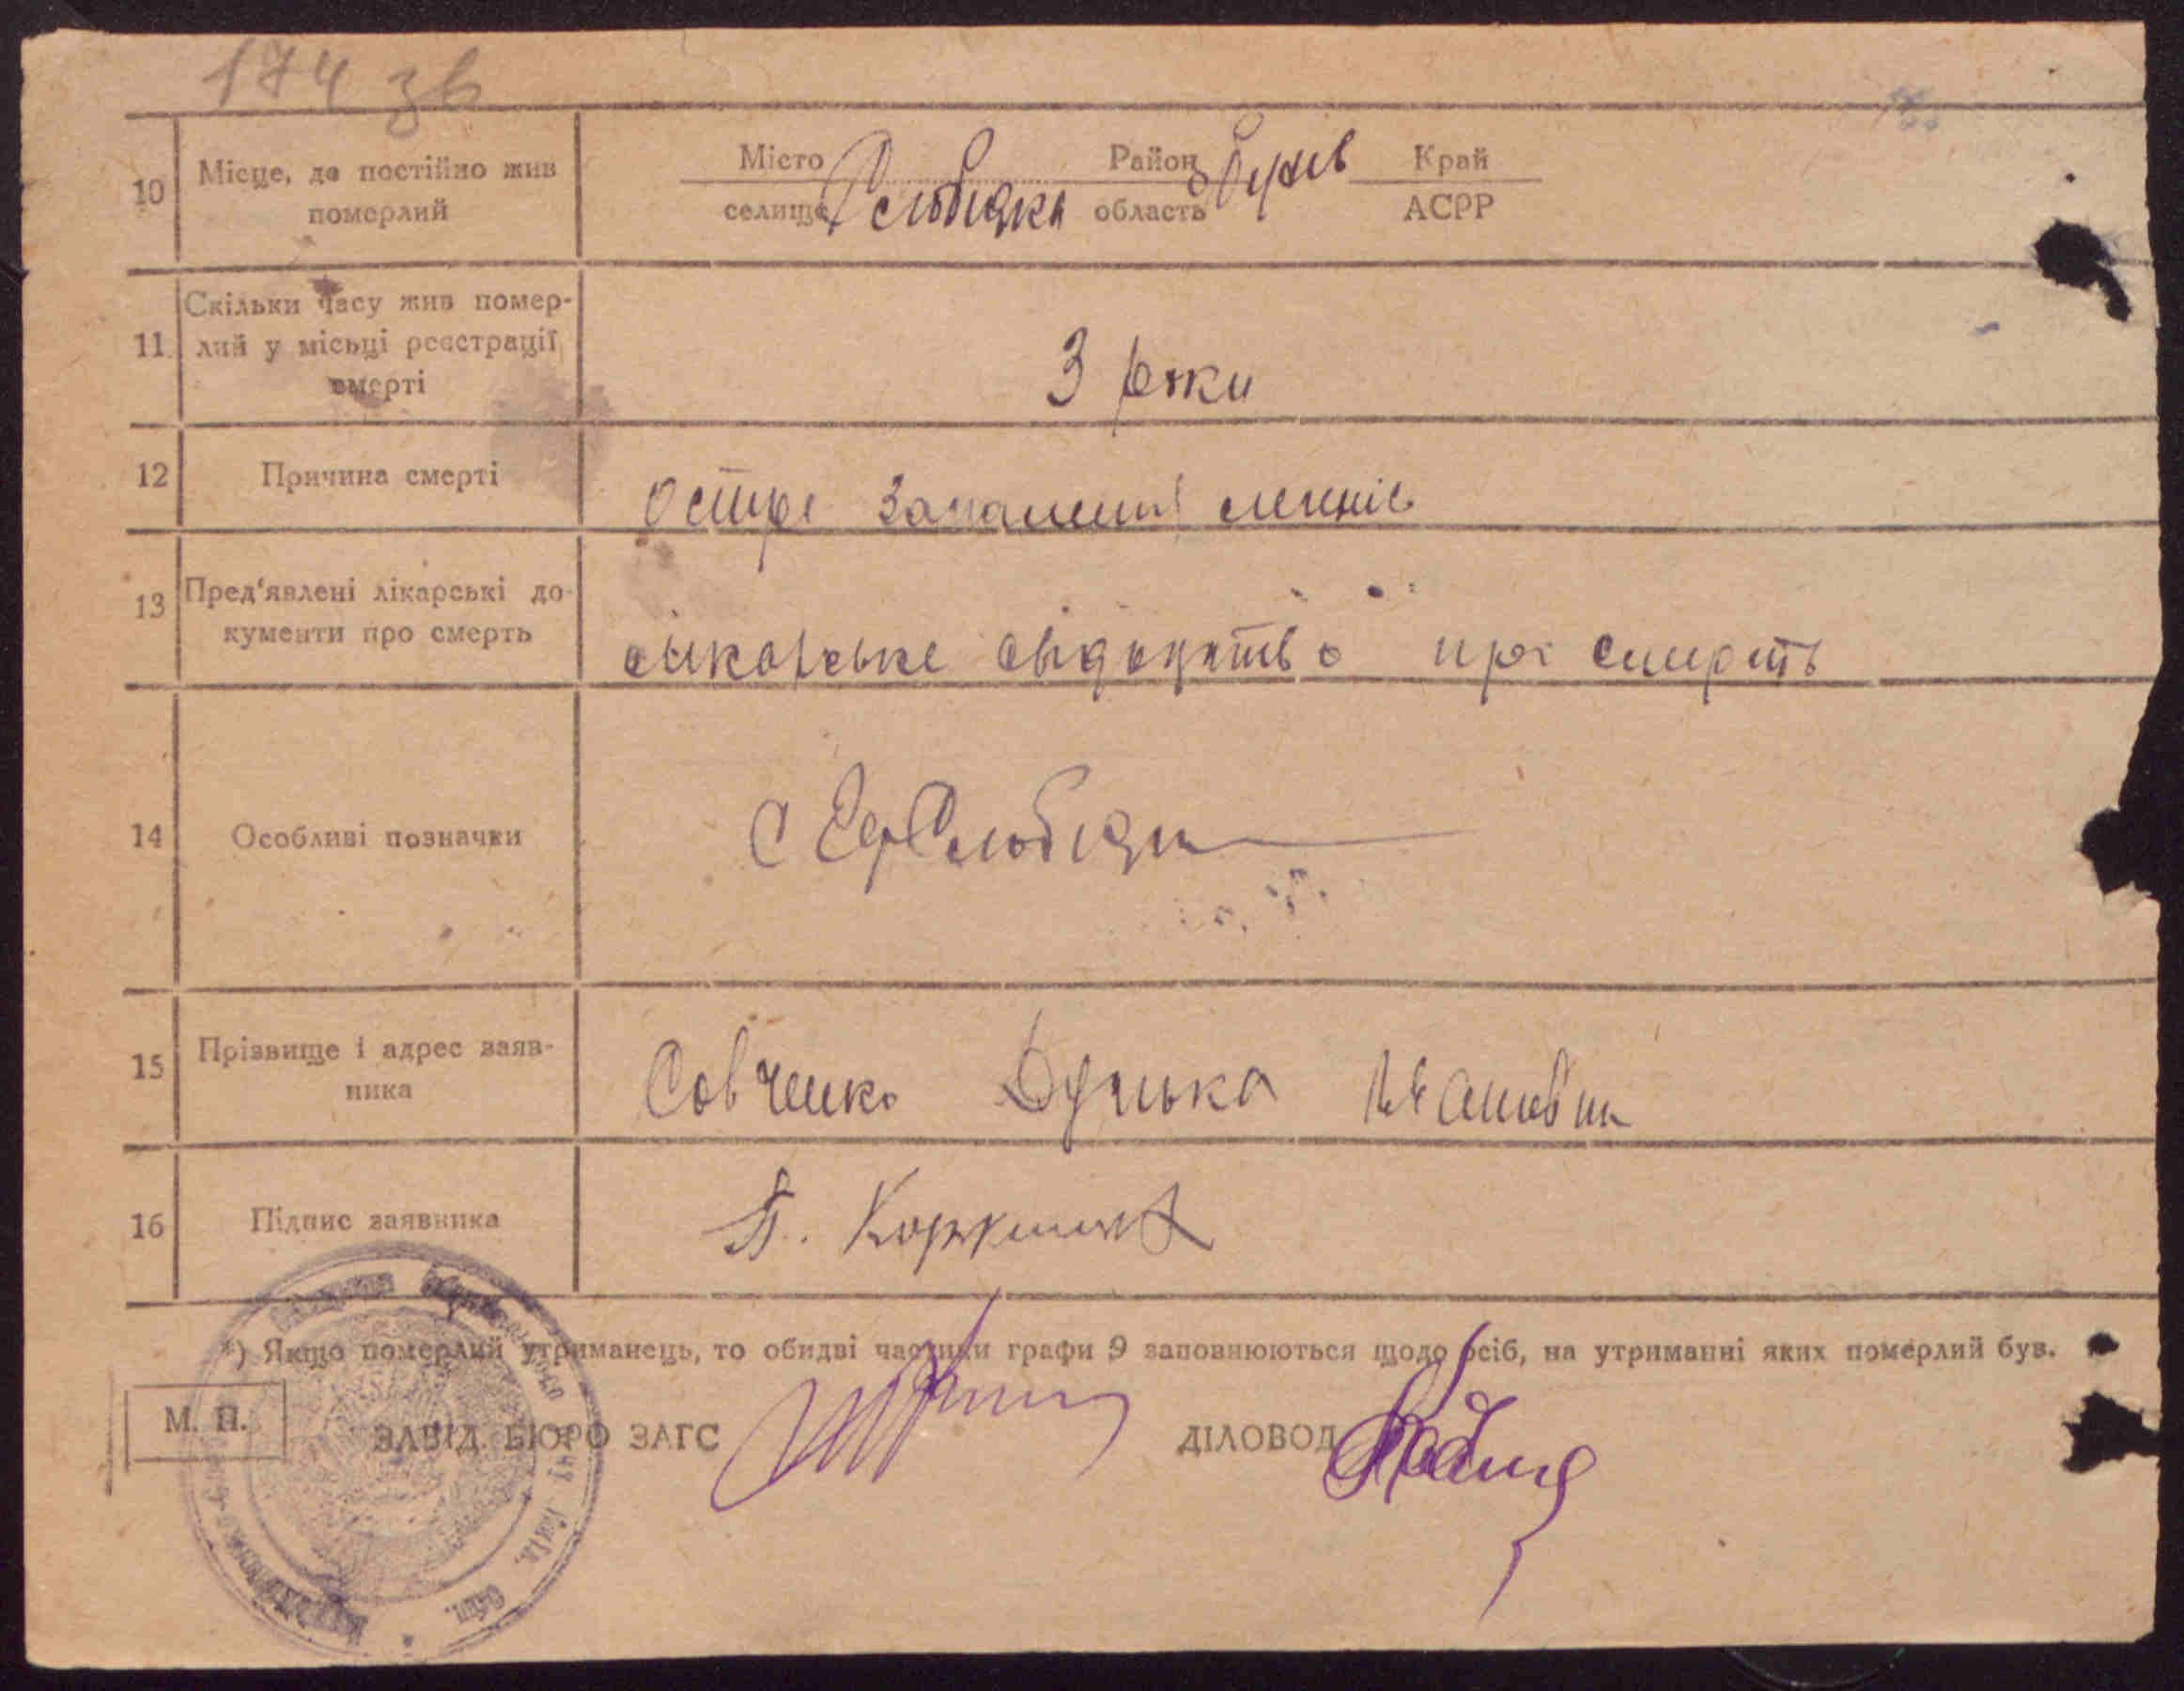 174 зв
10 Місце, де постійно жив Місто Район Край
померлий селище Слобідка область Обухів АСРР
Скільки часу жив помер-
11 лий у місьці реєстрації 3 роки
смерті
12 Причина смерті Остре запалення легенів
13 Пред'явлені лікарські до-
кументи про смерть лікарське свідоцтво про смерть
14 Особливі позначки С
15 Прізвище і адрес заяв-
ника Совченко Дунька
16 Підпис заявника
*) Якщо померлий утриманець, то обидві частини графи 9 заповнюються щодо осіб, на утриманні яких померлий був.
М. П. ЗАВІД. БЮРО ЗАГС ДІЛОВОД